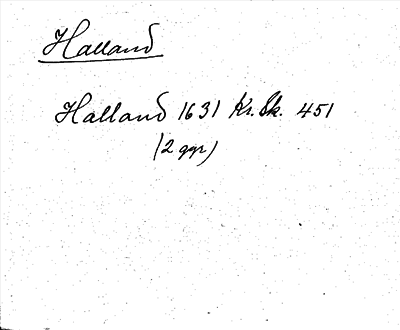 Halland
Halland 1631 Kr. Sk. 451
(2 ggr)